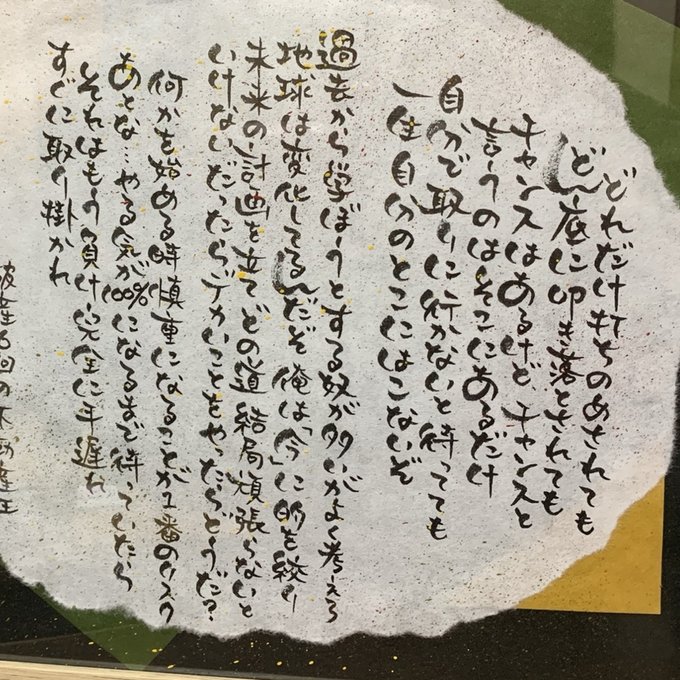 どれだけ打ちのめされても
どん底に叩き落とされても
チャンスはあるけど、チャンスと
言うのはそこにあるだけ
自分で取りに行かないと待ってても
一生自分のとこにはこないぞ
過去から学ぼうとする奴が多いがよく考えろ
地球は変化してるんだぞ 俺は「今」に的を絞り
未来の計画を立てどの道結局頑張らないと
いけないだったらデカいことをやったらどうだ?
何かを始める時慎重になることが1番のリスク
あとな…やる気が100%になるまで待っていたら
それはもう負け 完全に手遅れ
すぐに取り掛かれ
破産6回の不動産王